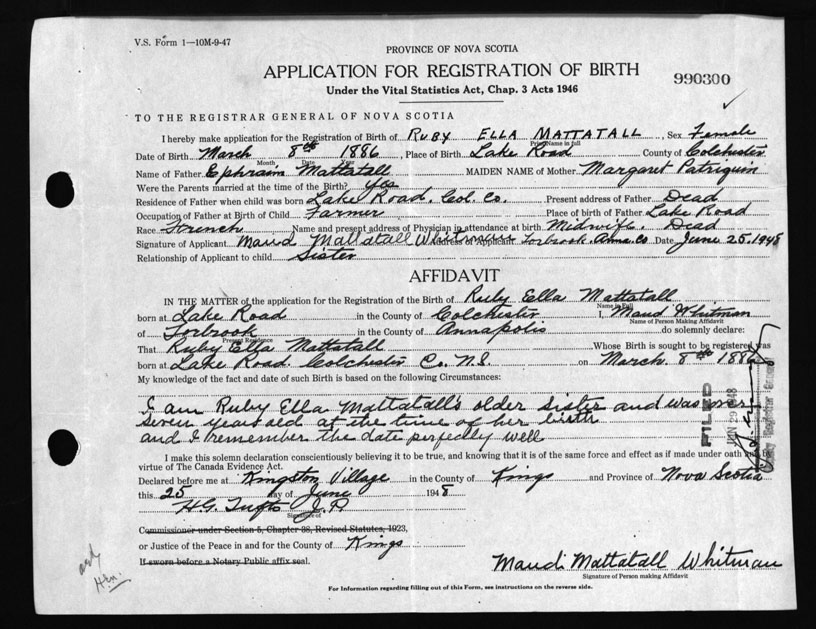 V.S. Form 1—10M-9-47
PROVINCE OF NOVA SCOTIA
APPLICATION FOR REGISTRATION OF BIRTH
990300
Under the Vital Statistics Act, Chap. 3 Acts 1946
TO THE REGISTRAR GENERAL OF NOVA SCOTIA
I hereby make application for the Registration of Birth of RUBY ELLA MATTATALL, Sex Female
Print Name in full
Date of Birth March 8th 1886, Place of Birth Lake Road County of Colchester
Month Date Year
Name of Father Ephraim Mattatall MAIDEN NAME of Mother Margaret Patriquin
Were the Parents married at the time of the Birth? Yes
Residence of Father when child was born Lake Road. Col. Co. Present address of Father Dead
Occupation of Father at Birth of Child Farmer Place of birth of Father Lake Road
Race French Name and present address of Physician in attendance at birth Midwife. Dead
Signature of Applicant Maud Mattatall Whitman Address of Applicant Torbrook. Anna. Co Date June 25. 1948
Relationship of Applicant to child Sister
AFFIDAVIT
IN THE MATTER of the application for the Registration of the Birth of Ruby Ella Mattatall
Name in Full
born at Lake Road in the County of Colchester I, Maud Whitman
Name of Person Making Affidavit
of Torbrook in the County of Annapolis do solemnly declare:
Present Residence
That Ruby Ella Mattatall Whose Birth is sought to be registered was
born at Lake Road. Colchester Co. N.S. on March. 8th 1886
My knowledge of the fact and date of such Birth is based on the following Circumstances:
I am Ruby Ella Mattatall's older sister and was over
seven years old at the time of her birth
and I remember the date perfectly well
FILED
JUN 29 1948
I make this solemn declaration conscientiously believing it to be true, and knowing that it is of the same force and effect as if made under oath and by
virtue of The Canada Evidence Act.
Declared before me at Kingston Village in the County of Kings and Province of Nova Scotia
this 25 day of June 1948
H.G. Tufts J.P.
Signature of
Commissioner under Section 5, Chapter 38, Revised Statutes, 1923,
or Justice of the Peace in and for the County of Kings
If sworn before a Notary Public affix seal.
Maud Mattatall Whitman
Signature of Person making Affidavit
For Information regarding filling out of this Form, see instructions on the reverse side.